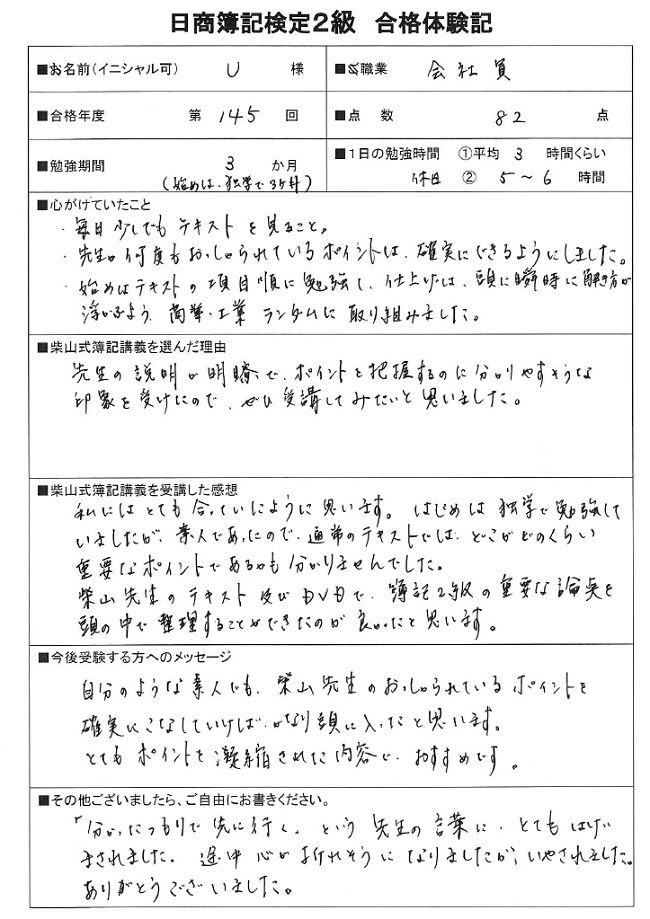 日商簿記検定2級 合格体験記
■お名前(イニシャル可) U 様 ■ご職業 会社員
■合格年度 第 145 回 ■点 数 82 点
■勉強期間 3 か月 (始めは、独学で3ヶ月) ■1日の勉強時間 ①平均 3 時間くらい
休日 ② 5〜6 時間
■心がけていたこと
・毎日少しでもテキストを見ること。
・先生が何度もおっしゃられているポイントは、確実にできるようにしました。
・始めはテキストの項目順に勉強して、仕上げは、頭に瞬時に解き方が
浮かぶよう、商業・工業ランダムに取り組みました。
■柴山式簿記講義を選んだ理由
先生の説明が明瞭で、ポイントを把握するのに分かりやすそうな
印象を受けたので、ぜひ受講してみたいと思いました。
■柴山式簿記講義を受講した感想
私にはとても合っていたように思います。 はじめは独学で勉強して
いましたが、素人であったので、通常のテキストでは、どこがどのくらい
重要なポイントであるかも分かりませんでした。
柴山先生のテキスト及びDVDで、簿記2級の重要な論点を
頭の中で整理することができたのが良かったと思います。
■今後受験する方へのメッセージ
自分のような素人でも、柴山先生のおっしゃられているポイントを
確実にこなしていけば、かなり頭に入ったと思います。
とてもポイントを凝縮された内容で、おすすめです。
■その他ございましたら、ご自由にお書きください。
「分かったつもりで先に行く。」という先生の言葉に、とてもはげ
まされました。 途中心が折れそうになりましたが、いやされました。
ありがとうございました。